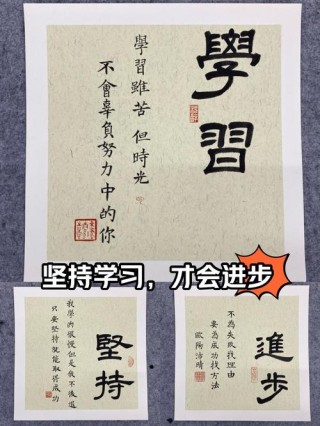 學習
學習雖苦 但時光
不會辜負努力中的你
坚持学习，才会进步
堅持
我學的很慢但是我不後退
只要堅持就能取得成功
進步
不為失敗找理由
要為成功找方法
歐陽